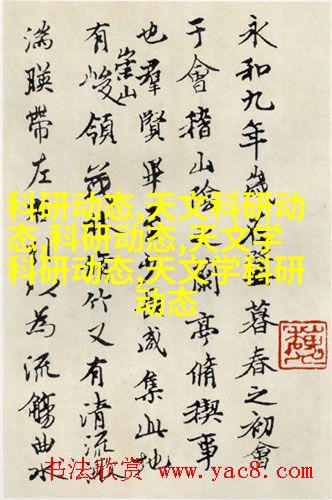 永和九年歲在暮春之初會
于會稽山陰之蘭亭脩禊事
也羣賢畢至咸集此地
有崇山峻領茂林竹又有清流激
湍暎帶左引以為流觴曲水
科研动态,天文科研动
态,科研动态,天文学
科研动态,天文学科研
动态
书法欣赏 www.yac8.com